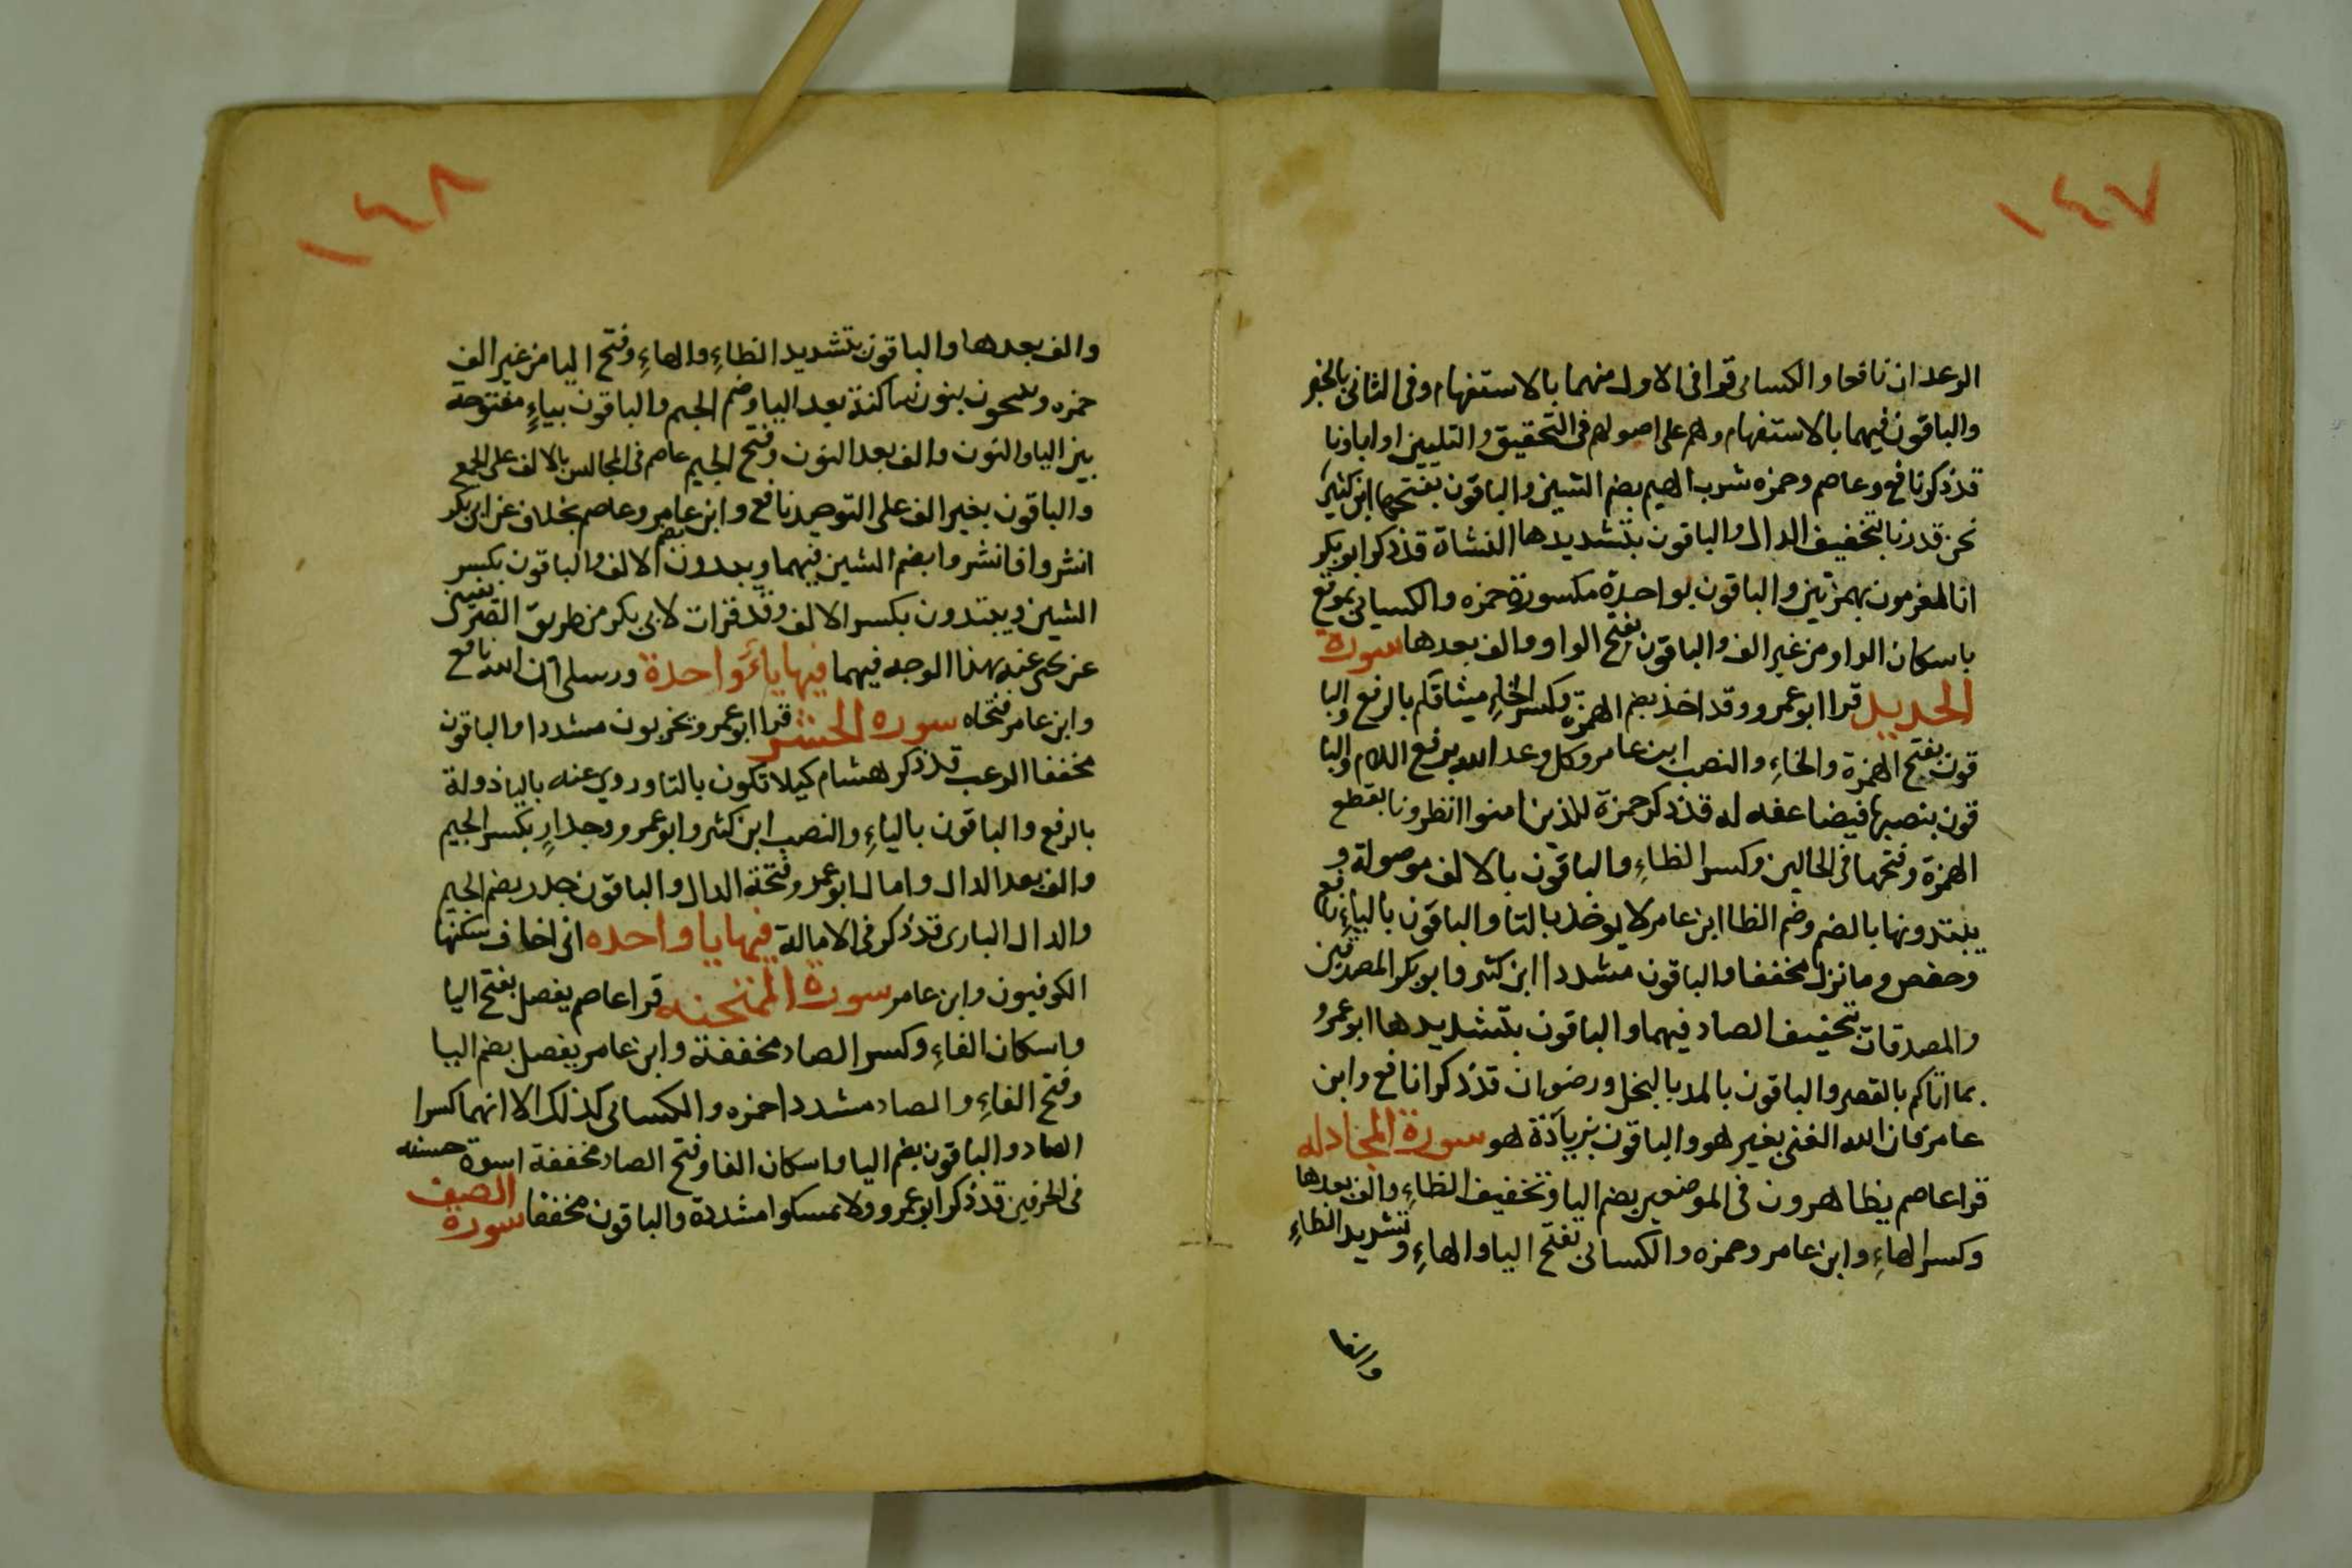 ١٤٧
الرعد ان نافعا والكسائى قرا فى الاول منهما بالاستفهام وفى الثانى بالخبر
والباقون فيهما بالاستفهام وهم على اصولهم فى التحقيق والتليين اواباونا
قد ذكر نافع وعاصم وحمزه شرب الهيم بضم الشين والباقون بفتحها ابن كثير
نحن قدرنا بتخفيف الدال والباقون بتشديدها النشاة قد ذكر ابو بكر
انا لمغرمون بهمزتين والباقون بواحدة مكسورة حمزه والكسيائى بموقع
باسكان الواو من غير الف والباقون بفتح الواو والف بعدها سورة
الحديد قرا ابو عمرو وقد اخذ بضم الهمزة وكسر الخاءِ ميثاقكم بالرفع والبا
قون بفتح الهمزة والخاءِ والنصب ابن عامر وكل وعد الله برفع اللام والبا
قون بنصبها فيضاعفه له قد ذكر حمزة للذين امنوا انظرونا بقطع
الهمزة وفتحها فى الحالين وكسر الظاءِ والباقون بالالف موصولة و
يبتدونها بالضم وضم الظا ابن عامر لا يوخذ بالتا والباقون بالياءِ نافع
وحفص وما نزل مخففا والباقون مشددا ابن كثير وابو بكر المصدقين
والمصدقات بتخفيف الصاد فيهما والباقون بتشديدها ابو عمرو
بما اتاكم بالقصر والباقون بالمد بالبخل ورضوان قد ذكرا نافع وابن
عامر فان الله الغنى بغير هو والباقون بزيادة هو سورة المجادله
قرا عاصم يظاهرون فى الموضعين بضم اليا وتخفيف الظاءِ والف بعدها
وكسر الهاءِ وابن عامر وحمزه والكسائى بفتح اليا والهاءِ وتشديد الظاءِ
والف
١٤٨
والف بعدها والباقون بتشديد الظاءِ والهاءِ وفتح اليا من غير الف
حمزه وينتجون بنون ساكنة بعد اليا وضم الجيم والباقون بياءٍ مفتوحة
بين اليا والنون والف بعد النون وفتح الجيم عاصم فى المجالس بالالف على الجمع
والباقون بغير الف على التوحيد نافع وابن عامر وعاصم بخلاف عن ابى بكر
انشزوا فانشزوا بضم الشين فيهما ويبدون بضم الالف والباقون بكسر
الشين ويبتدون بكسر الالف وقد قرات لابى بكر من طريق الصريفينى
عن يحيى عنه بهذا الوجه فيهما فيها ياءً واحدة ورسلى ان الله نافع
وابن عامر فتحاه سوره الحشر قرا ابو عمرو يخربون مشددا والباقون
مخففا الرعب قد ذكر هشام كيلا تكون بالتا وروى عنه باليا دولة
بالرفع والباقون بالياءِ والنصب ابن كثير وابو عمرو وجدارٍ بكسر الجيم
والف بعد الدال وامال ابو عمرو فتحة الدال والباقون جدر بضم الجيم
والدال البارى قد ذكر فى الامالة فيها يا واحده انى اخاف سكنها
الكوفيون وابن عامر سورة الممتحنه قرا عاصم يفصل بفتح اليا
واسكان الفاءِ وكسر الصاد مخففة وابن عامر يفصل بضم اليا
وفتح الفاءِ والصاد مشددا حمزه والكسائى كذلك الا انهما كسرا
الصاد والباقون بضم اليا واسكان الفا وفتح الصاد مخففة اسوة حسنه
فى الحرفين قد ذكر ابو عمرو ولا تمسكوا مشددة والباقون مخففا سورة الصف